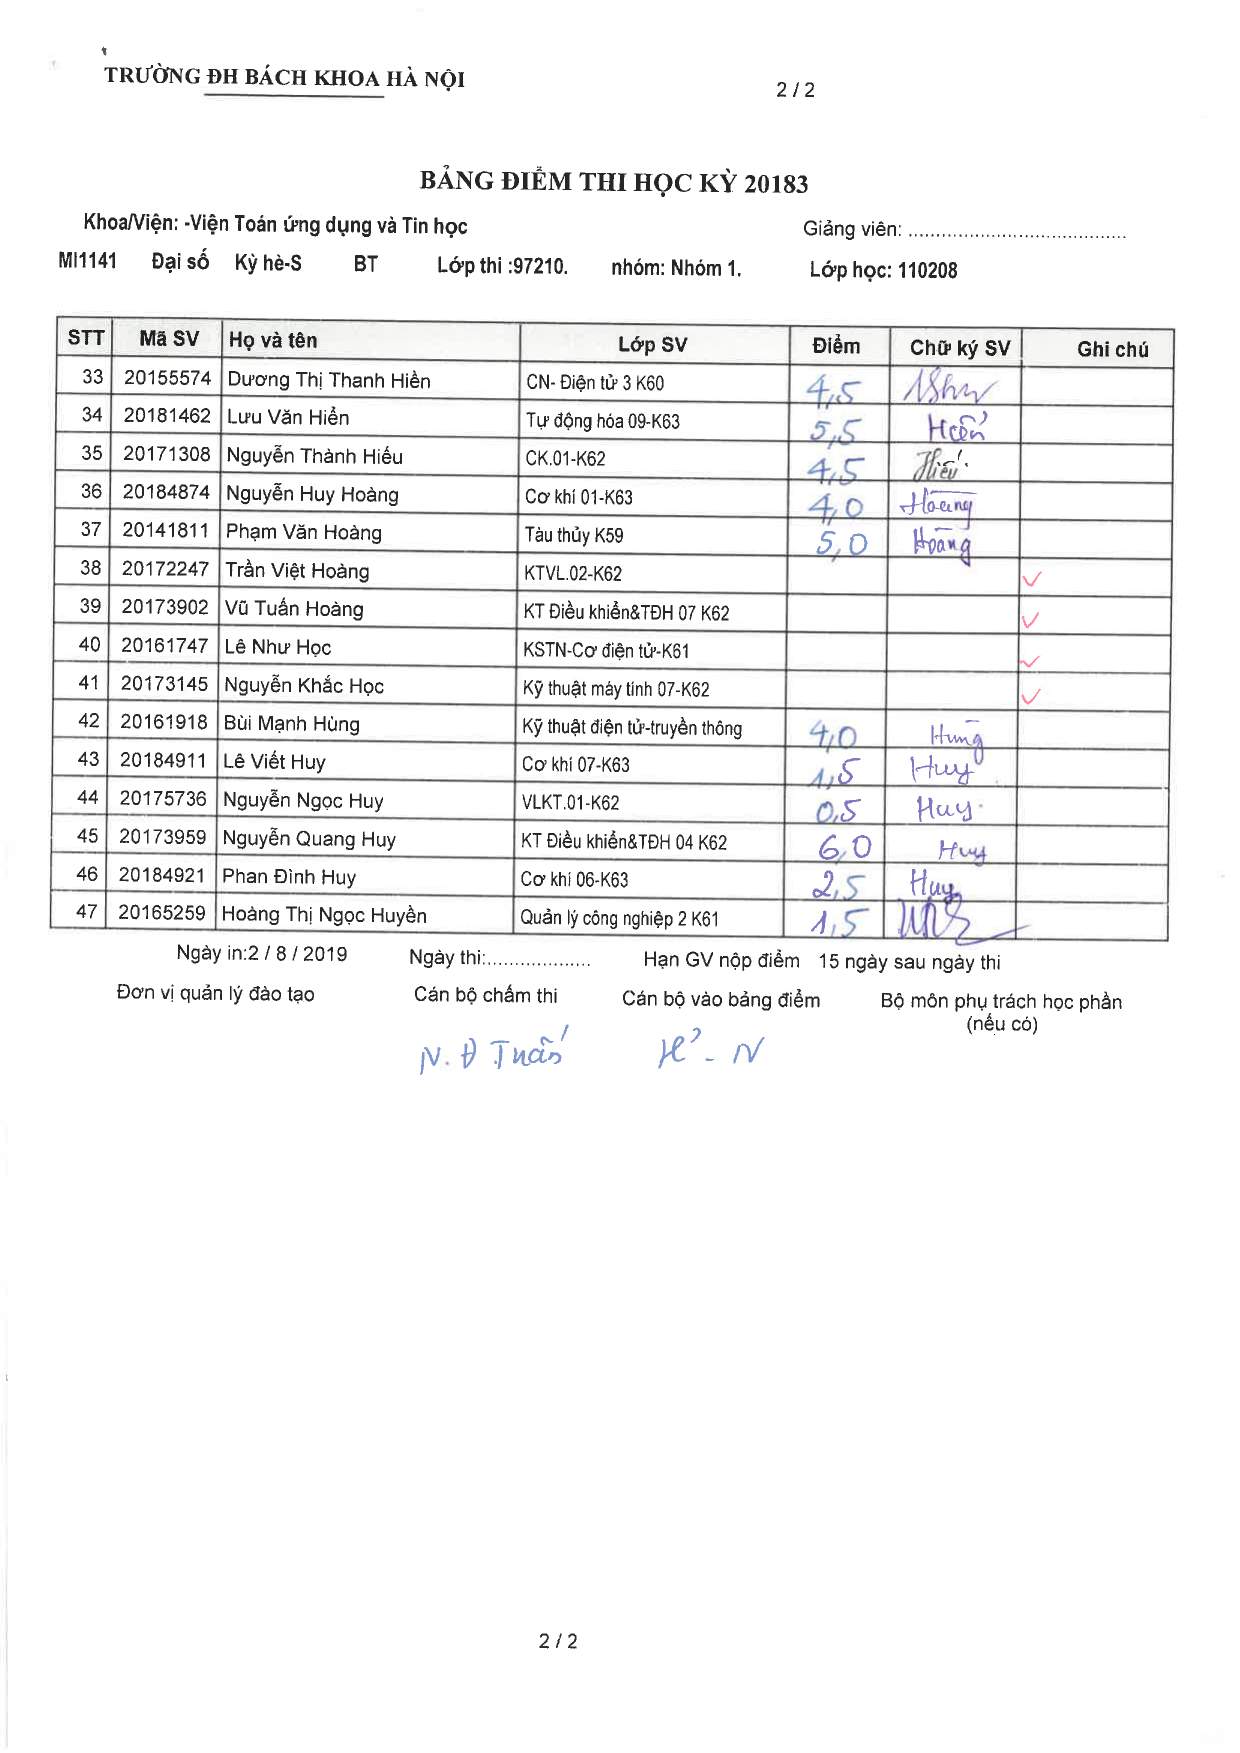 TRƯỜNG ĐH BÁCH KHOA HÀ NỘI
2 / 2
BẢNG ĐIỂM THI HỌC KỲ 20183
Khoa/Viện: -Viện Toán ứng dụng và Tin học Giảng viên: ........................................
MI1141 Đại số Kỳ hè-S BT Lớp thi :97210. nhóm: Nhóm 1. Lớp học: 110208
STT Mã SV Họ và tên Lớp SV Điểm Chữ ký SV Ghi chú
33 20155574 Dương Thị Thanh Hiền CN- Điện tử 3 K60 4,5
34 20181462 Lưu Văn Hiển Tự động hóa 09-K63 5,5 Hiển
35 20171308 Nguyễn Thành Hiếu CK.01-K62 4,5 Hiếu
36 20184874 Nguyễn Huy Hoàng Cơ khí 01-K63 4,0 Hoàng
37 20141811 Phạm Văn Hoàng Tàu thủy K59 5,0 Hoàng
38 20172247 Trần Việt Hoàng KTVL.02-K62 ✓
39 20173902 Vũ Tuấn Hoàng KT Điều khiển&TĐH 07 K62 ✓
40 20161747 Lê Như Học KSTN-Cơ điện tử-K61 ✓
41 20173145 Nguyễn Khắc Học Kỹ thuật máy tính 07-K62 ✓
42 20161918 Bùi Mạnh Hùng Kỹ thuật điện tử-truyền thông 4,0 Hùng
43 20184911 Lê Viết Huy Cơ khí 07-K63 1,5 Huy
44 20175736 Nguyễn Ngọc Huy VLKT.01-K62 0,5 Huy
45 20173959 Nguyễn Quang Huy KT Điều khiển&TĐH 04 K62 6,0 Huy
46 20184921 Phan Đình Huy Cơ khí 06-K63 2,5 Huy
47 20165259 Hoàng Thị Ngọc Huyền Quản lý công nghiệp 2 K61 1,5
Ngày in:2 / 8 / 2019 Ngày thi:................... Hạn GV nộp điểm 15 ngày sau ngày thi
Đơn vị quản lý đào tạo Cán bộ chấm thi Cán bộ vào bảng điểm Bộ môn phụ trách học phần
(nếu có)
N. Đ Tuấn
2 / 2